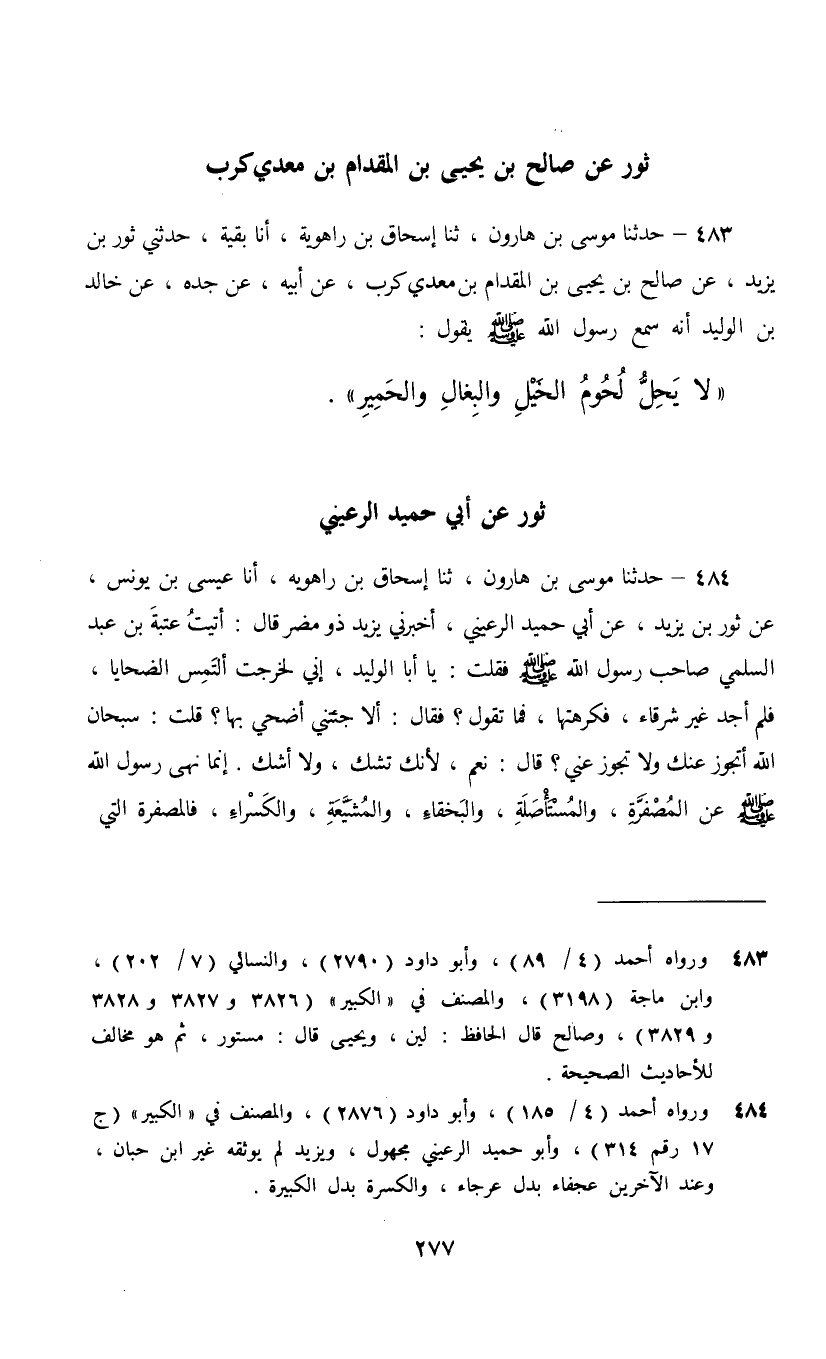 ثور عن صالح بن يحيى بن المقدام بن معدي كرب
٤٨٣ – حدثنا موسى بن هارون ، ثنا إسحاق بن راهوية ، أنا بقية ، حدثني ثور بن
يزيد ، عن صالح بن يحيى بن المقدام بن معدي كرب ، عن أبيه ، عن جده ، عن خالد
بن الوليد أنه سمع رسول الله ﷺ يقول :
« لا يَحِلُّ لُحُومُ الخَيْلِ والبِغالِ والحَمِيرِ» .
ثور عن أبي حميد الرعيني
٤٨٤ – حدثنا موسى بن هارون ، ثنا إسحاق بن راهويه ، أنا عيسى بن يونس ،
عن ثور بن يزيد ، عن أبي حميد الرعيني ، أخبرني يزيد ذو مضر قال : أتيتُ عتبةَ بن عبد
السلمي صاحب رسول الله ﷺ فقلت : يا أبا الوليد ، إني لخرجت ألتَمِس الضحايا ،
فلم أجد غير شرقاء ، فكرهتها ، فما تقول ؟ فقال : ألا جئتني أضحي بها ؟ قلت : سبحان
الله أتجوز عنك ولا تجوز عني ؟ قال : نعم ، لأنك تشك ، ولا أشك . إنما نهى رسول الله
ﷺ عن المُصْفَرَّةِ ، والمُسْتَأْصَلَةِ ، والبَخقاءِ ، والمُشَيَّعَةِ ، والكَسْراءِ ، فالمصفرة التي
٤٨٣ ورواه أحمد (٤ / ٨٩) ، وأبو داود (٢٧٩٠) ، والنسالي (٧ / ٢٠٢) ،
وابن ماجة (٣١٩٨) ، والمصنف في « الكبير» (٣٨٢٦ و ٣٨٢٧ و ٣٨٢٨
و ٣٨٢٩) ، وصالح قال الحافظ : لين ، ويحيى قال : مستور ، ثم هو مخالف
للأحاديث الصحيحة .
٤٨٤ ورواه أحمد (٤ / ١٨٥) ، وأبو داود (٢٨٧٦) ، والمصنف في « الكبير» (ج
١٧ رقم ٣١٤) ، وأبو حميد الرعيني مجهول ، ويزيد لم يوثقه غير ابن حبان ،
وعند الآخرين عجفاء بدل عرجاء ، والكسرة بدل الكبيرة .
٢٧٧